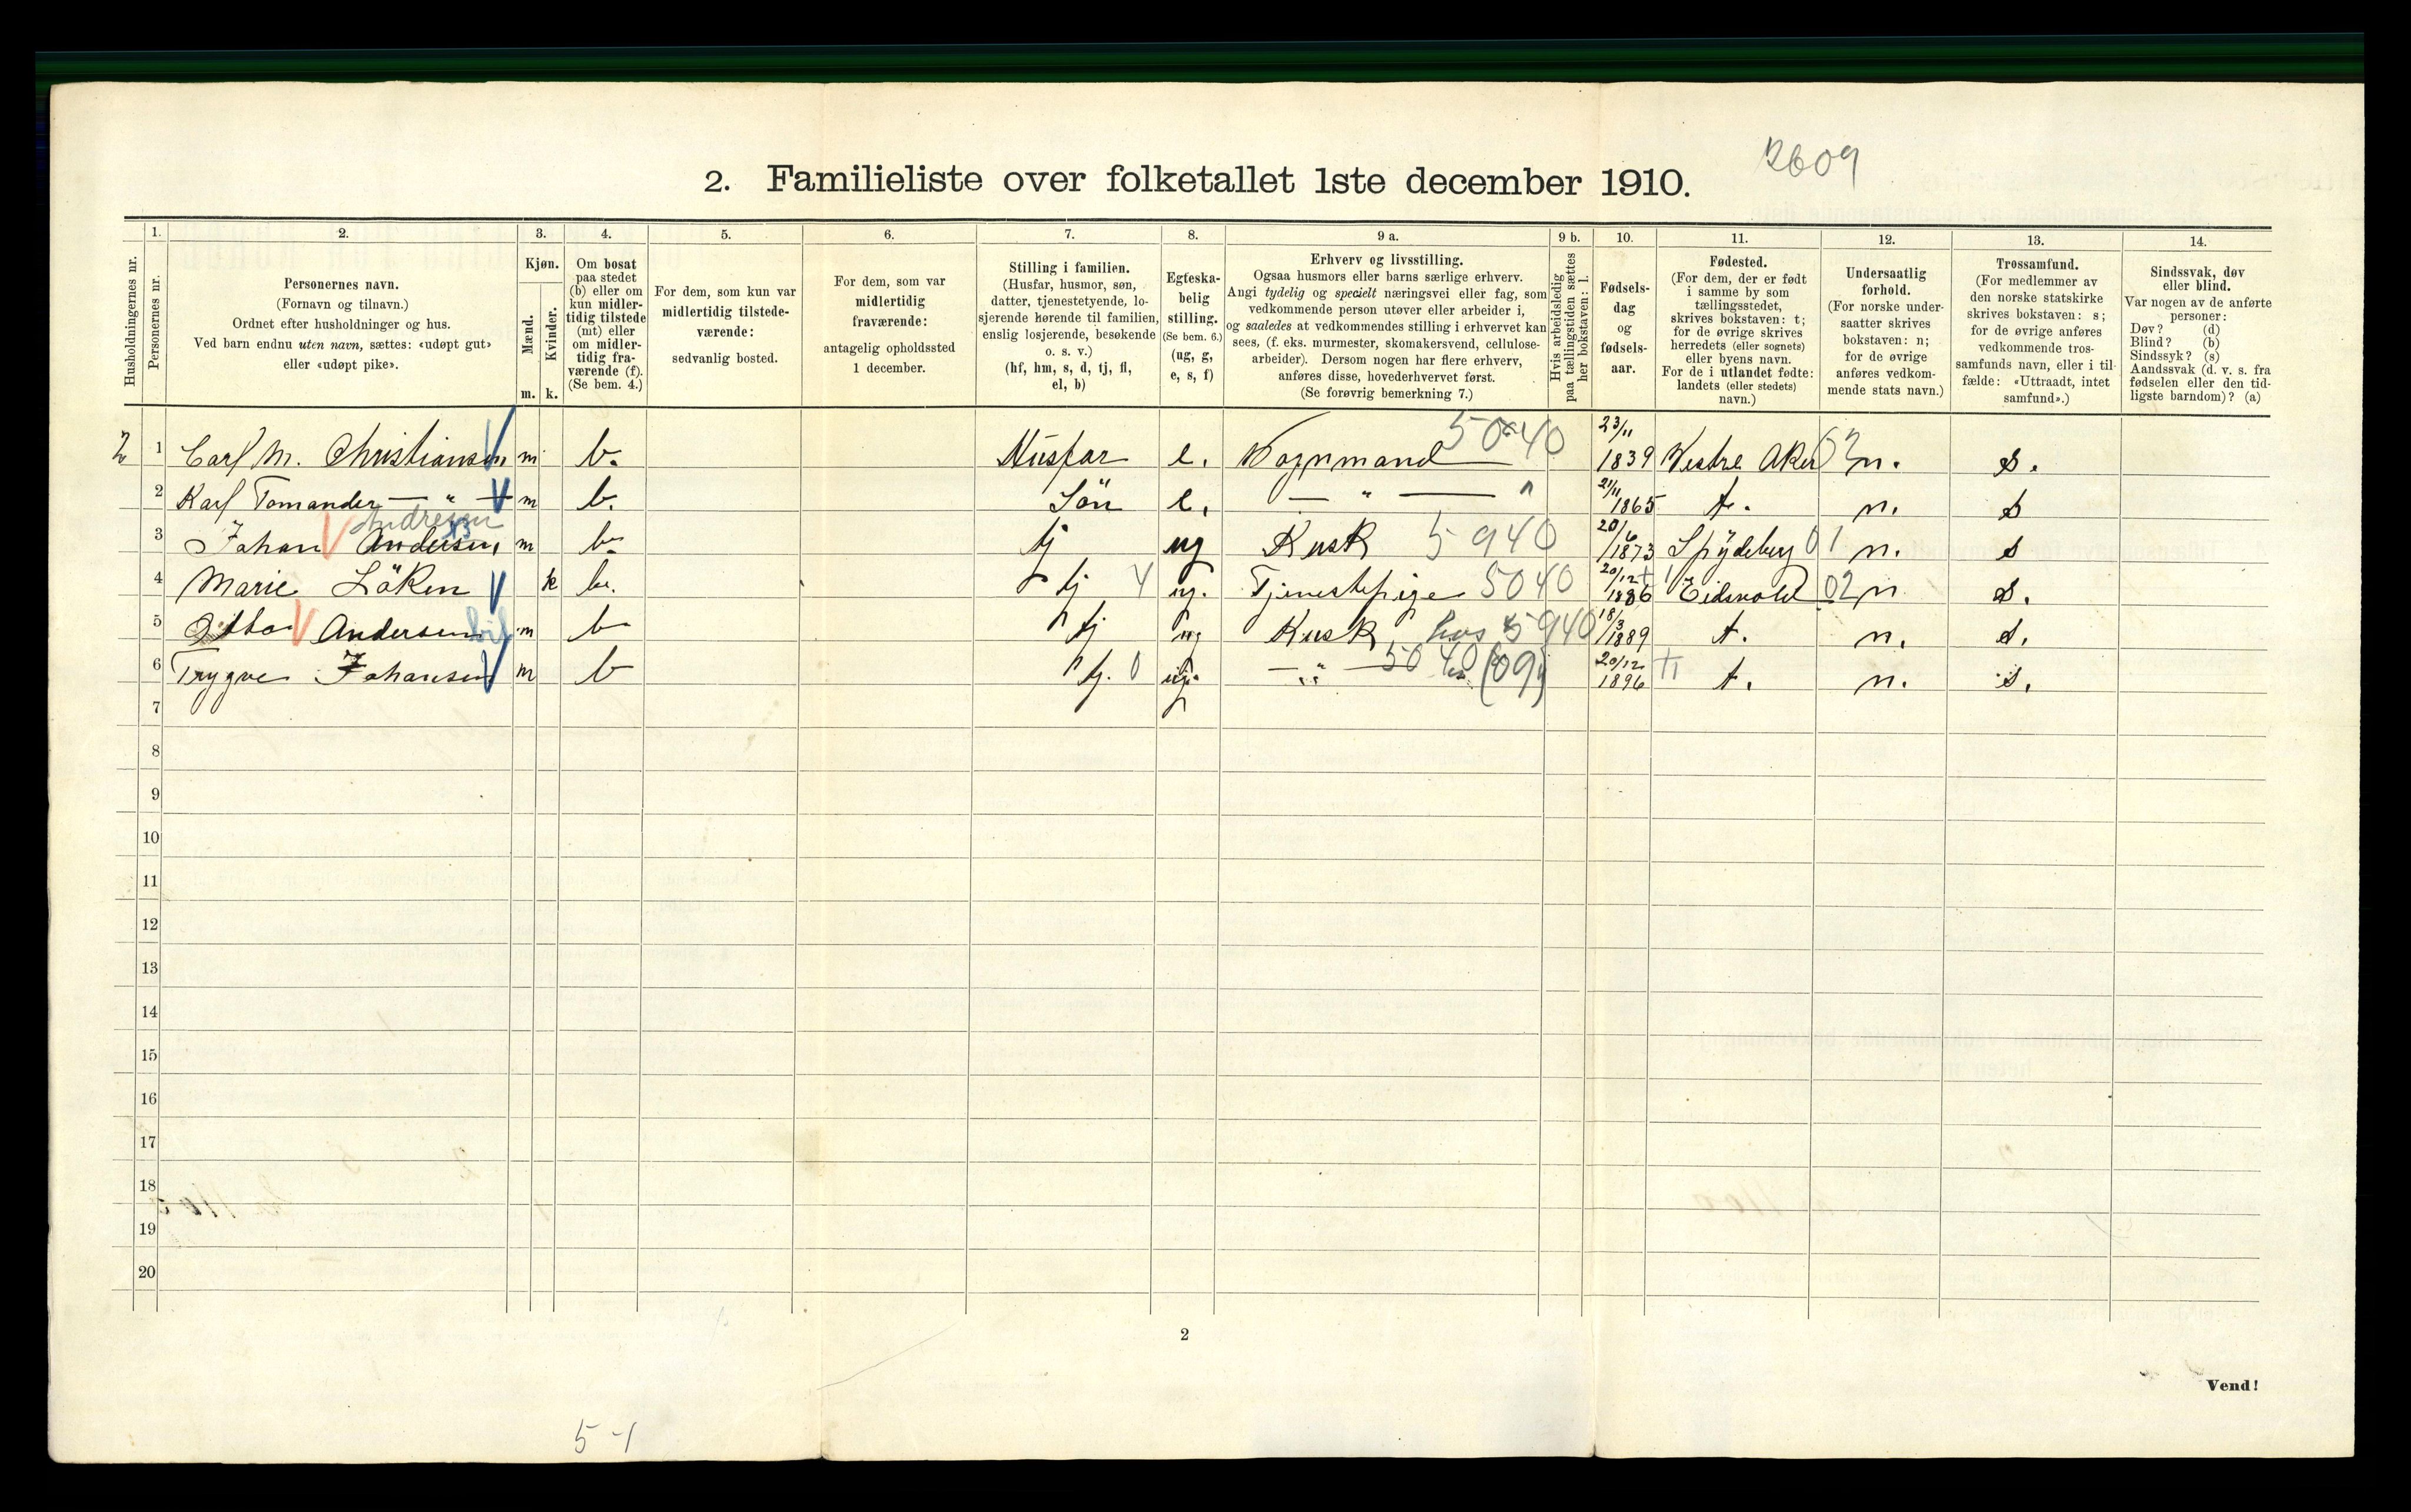 2609
2. Familieliste over folketallet 1ste december 1910.
1. 2. 3. 4. 5. 6. 7. 8. 9 a. 9 b. 10. 11. 12. 13. 14.
Husholdningernes nr.
Personernes nr.
Personernes navn.
(Fornavn og tilnavn.)
Ordnet efter husholdninger og hus.
Ved barn endnu uten navn, sættes: «udøpt gut»
eller «udøpt pike».
Kjøn.
Mænd.
Kvinder.
m. k.
Om bosat
paa stedet
(b) eller om
kun midler-
tidig tilstede
(mt) eller
om midler-
tidig fra-
værende (f).
(Se bem. 4.)
For dem, som kun var
midlertidig tilstede-
værende:
sedvanlig bosted.
For dem, som var
midlertidig
fraværende:
antagelig opholdssted
1 december.
Stilling i familien.
(Husfar, husmor, søn,
datter, tjenestetyende, lo-
sjerende hørende til familien,
enslig losjerende, besøkende
o. s. v.)
(hf, hm, s, d, tj, fl,
el, b)
Egteska-
belig
stilling.
(Se bem. 6.)
(ug, g,
e, s, f)
Erhverv og livsstilling.
Ogsaa husmors eller barns særlige erhverv.
Angi tydelig og specielt næringsvei eller fag, som
vedkommende person utøver eller arbeider i,
og saaledes at vedkommendes stilling i erhvervet kan
sees, (f. eks. murmester, skomakersvend, cellulose-
arbeider). Dersom nogen har flere erhverv,
anføres disse, hovederhvervet først.
(Se forøvrig bemerkning 7.)
Hvis arbeidsledig
paa tællingstiden sættes
her bokstaven: l.
Fødsels-
dag
og
fødsels-
aar.
Fødested.
(For dem, der er født
i samme by som
tællingsstedet,
skrives bokstaven: t;
for de øvrige skrives
herredets (eller sognets)
eller byens navn.
For de i utlandet fødte:
landets (eller stedets)
navn.)
Undersaatlig
forhold.
(For norske under-
saatter skrives
bokstaven: n;
for de øvrige
anføres vedkom-
mende stats navn.)
Trossamfund.
(For medlemmer av
den norske statskirke
skrives bokstaven: s;
for de øvrige anføres
vedkommende tros-
samfunds navn, eller i til-
fælde: «Uttraadt, intet
samfund».)
Sindssvak, døv
eller blind.
Var nogen av de anførte
personer:
Døv? (d)
Blind? (b)
Sindssyk? (s)
Aandssvak (d. v. s. fra
fødselen eller den tid-
ligste barndom)? (a)
2 1 Carl M. Christiansen m b. Husfar e. Vognmand 5040 23/11 1839 Vestre Aker 02 n. s.
2 Karl Tomander — " — m b. Sön e. — " — " 21/11 1865 t. n. s
Andresen
3 Johan Andersen m b. tj ug Kusk 5940 20/6 1873 Spydeberg 01 n. s
4 Marie Löken k b. tj 4 ug. Tjenestepige 5040 20/12 1886 Eidsvold 02 n s.
5 Otto Andersen m b tj ug Kusk 5940 18/3 1889 t. n. s.
6 Trygve Johansen m b tj. 0 ug. — " — 5040 (09) 20/12 1896 t. n. s.
7
8
9
10
11
12
13
14
15
16
17
18
19
20
2
Vend!
5-1